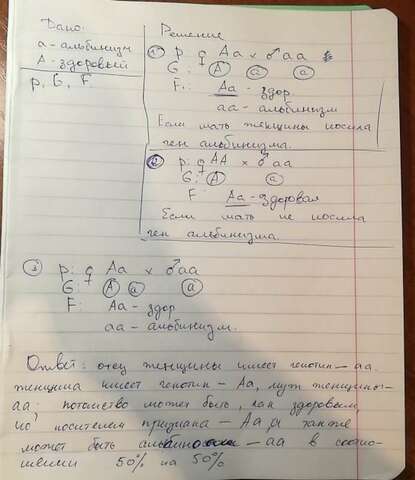 Дано:
а - альбинизм
А - здоровый
P, G, F.
Решение
① P: ♀ Аа × ♂ аа
G: А а а
F: Аа - здор
аа - альбинизм
Если мать женщины носила
ген альбинизма.
② P: ♀ АА × ♂ аа
G: А а
F: Аа - здоровая
Если мать не носила
ген альбинизма.
③ P: ♀ Аа × ♂ аа
G: А а а
F: Аа - здор
аа - альбинизм.
Ответ: отец женщины имеет генотип - аа.
женщина имеет генотип - Аа, муж женщины -
аа; потомство может быть, как здоровым,
но носителем признака - Аа, а также
может быть - аа в соотно-
шении 50% на 50%